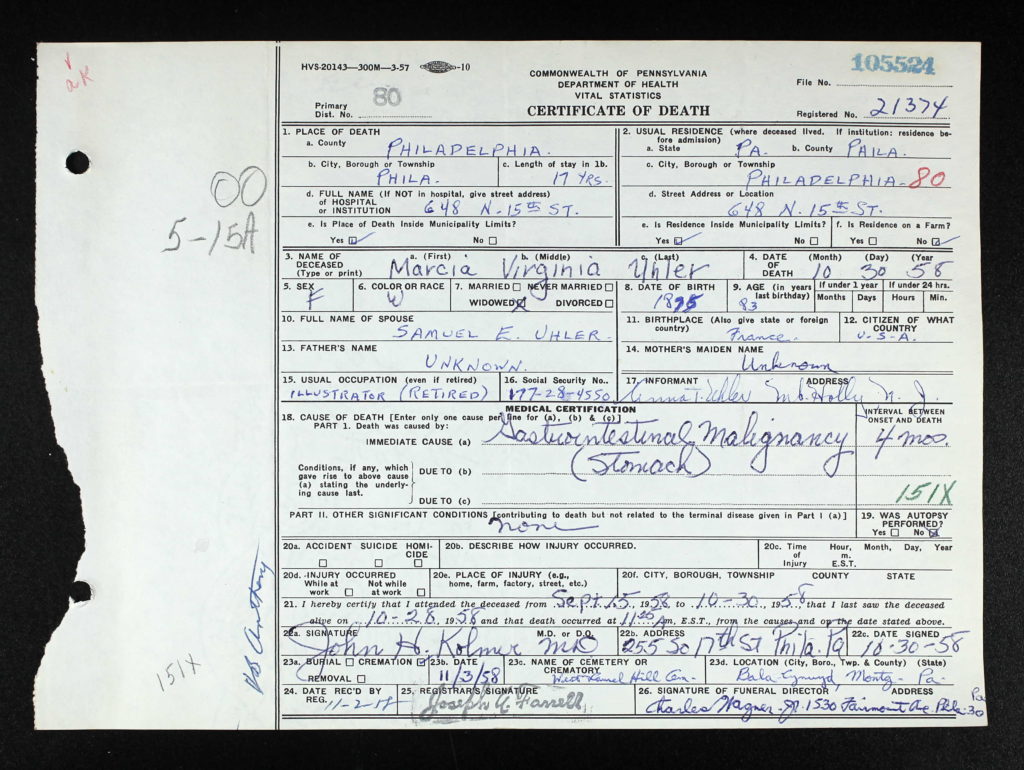 ak
HVS-20143—300M—3-57 -10
COMMONWEALTH OF PENNSYLVANIA
DEPARTMENT OF HEALTH
VITAL STATISTICS
CERTIFICATE OF DEATH
Primary Dist. No. 80
File No. 105524
Registered No. 21374
1. PLACE OF DEATH
a. County PHILADELPHIA.
b. City, Borough or Township PHILA.
c. Length of stay in 1b. 17 YRS.
d. FULL NAME (If NOT in hospital, give street address) OF HOSPITAL OR INSTITUTION 648 N. 15TH ST.
e. Is Place of Death Inside Municipality Limits?
Yes No
2. USUAL RESIDENCE (where deceased lived. If institution: residence before admission)
a. State PA. b. County PHILA.
c. City, Borough or Township PHILADELPHIA - 80
d. Street Address or Location
648 N. 15TH ST.
e. Is Residence Inside Municipality Limits? f. Is Residence on a Farm?
Yes No Yes No
00
5-15A
3. NAME OF DECEASED (Type or print) a. (First) b. (Middle) c. (Last)
Marcia Virginia Uhler
4. DATE OF DEATH (Month) (Day) (Year)
10 30 58
5. SEX F
6. COLOR OR RACE W
7. MARRIED NEVER MARRIED
WIDOWED X DIVORCED
8. DATE OF BIRTH 1875
9. AGE (in years last birthday) 83
If under 1 year Months Days
If under 24 hrs. Hours Min.
10. FULL NAME OF SPOUSE
SAMUEL E. UHLER.
11. BIRTHPLACE (Also give state or foreign country) France.
12. CITIZEN OF WHAT COUNTRY U.S.A.
13. FATHER'S NAME
UNKNOWN.
14. MOTHER'S MAIDEN NAME
Unknown
15. USUAL OCCUPATION (even if retired)
ILLUSTRATOR (RETIRED)
16. Social Security No..
177-28-4550
17. INFORMANT ADDRESS
Anna T. Uhler Mt. Holly N. J.
MEDICAL CERTIFICATION
18. CAUSE OF DEATH [Enter only one cause per line for (a), (b) & (c)]
PART 1. Death was caused by:
IMMEDIATE CAUSE (a) Gastrointestinal Malignancy
(Stomach)
INTERVAL BETWEEN ONSET AND DEATH
4 mos.
Conditions, if any, which gave rise to above cause (a) stating the underlying cause last.
DUE TO (b)
DUE TO (c)
151X
PART II. OTHER SIGNIFICANT CONDITIONS [contributing to death but not related to the terminal disease given in Part I (a)]
none
19. WAS AUTOPSY PERFORMED?
Yes No
20a. ACCIDENT SUICIDE HOMICIDE
20b. DESCRIBE HOW INJURY OCCURRED.
20c. Time of Injury Hour, m. E.S.T. Month, Day, Year
20d. INJURY OCCURRED
While at work Not while at work
20e. PLACE OF INJURY (e.g., home, farm, factory, street, etc.)
20f. CITY, BOROUGH, TOWNSHIP COUNTY STATE
21. I hereby certify that I attended the deceased from Sept. 15, 1958 to 10-30, 1958 that I last saw the deceased
alive on 10-28, 1958 and that death occurred at A m., E.S.T., from the causes and on the date stated above.
22a. SIGNATURE M.D. or D.O.
John H. Kolmer MD
22b. ADDRESS
255 So 17th St Phila. Pa
22c. DATE SIGNED
10-30-58
23a. BURIAL CREMATION
REMOVAL
23b. DATE
11/3/58
23c. NAME OF CEMETERY OR CREMATORY
West Laurel Hill Cem-
23d. LOCATION (City, Boro., Twp. & County) (State)
Bala-Cynwyd, Montg- Pa-
24. DATE REC'D BY REG. 11-2-58
25. REGISTRAR'S SIGNATURE
Joseph A. Farrell
26. SIGNATURE OF FUNERAL DIRECTOR ADDRESS
Charles Wagner-Jr. 1530 Fairmount Ave Phila-30 Pa-
151X
Anthony